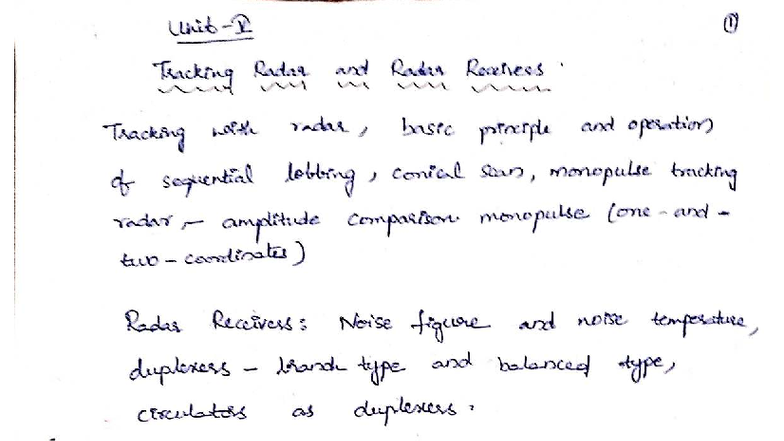 Unit-V
①
Tracking Radar and Radar Receivers.
Tracking with radar, basic principle and operation
of sequential lobbing, conical scan, monopulse tracking
radar – amplitude comparison monopulse (one-and-
two-coordinates)
Radar Receivers: Noise figure and noise temperature,
duplexers – branch type and balanced type,
circulators as duplexers.